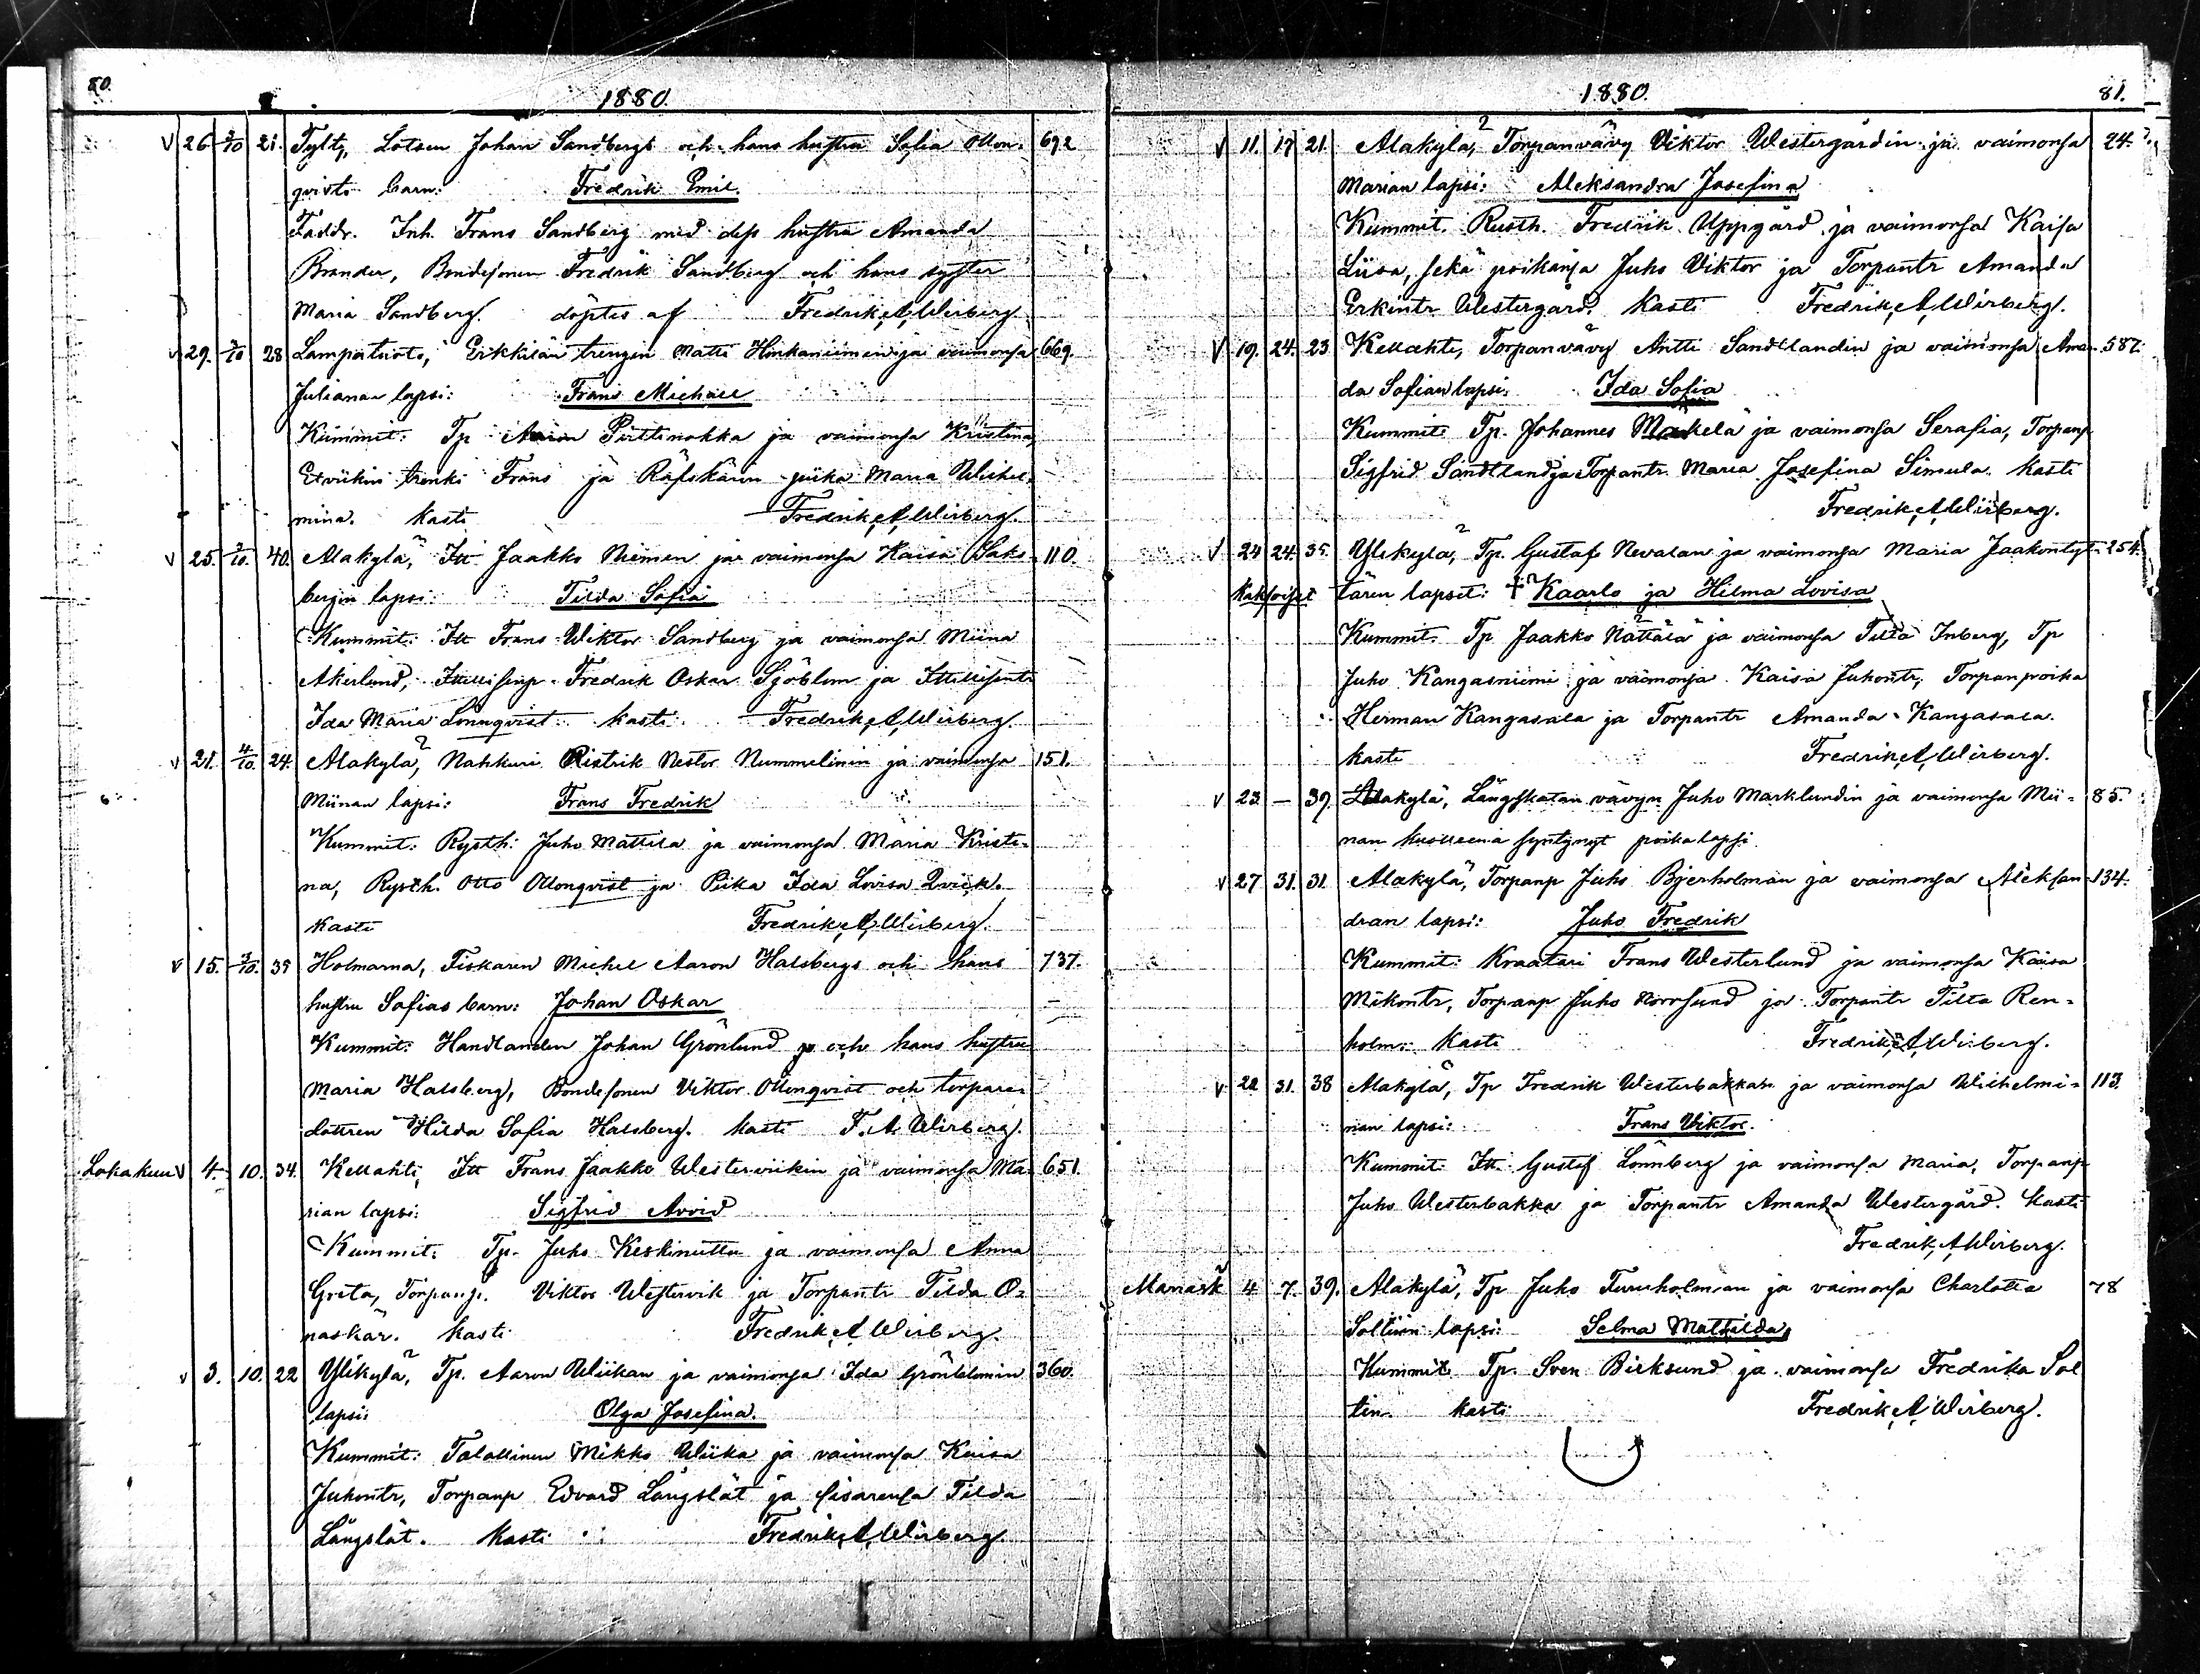 80.
1880.
V 26. 3/10 21. Tylty, Lotsen Johan Sandbergs och hans hustru Sofia Otton- 692
qvists barn: Fredrik Emil.
Faddr. Inh. Frans Sandberg med dess hustru Amanda
Brander, Bondesonen Fredrik Sandberg och hans syster
Maria Sandberg. döptes af Fredrik A Wirberg
V 29. 3/10 28 Lampaluoto, Erikkilän trengin Matti Hinkaniemen ja vaimonsa 669.
Julianan lapsi: Frans Michael
Kummit: Tp Aaron Pirttinokka ja vaimonsa Kristina
Etviikin trenki Frans ja Räfskärin piika Maria Wilhel-
mina. Kasti Fredrik A Wirberg.
V 25. 3/10. 40. Alakylä, Itt Jaakko Niemen ja vaimonsa Kaisa Saks- 110.
bergin lapsi: Tilda Sofia
Kummit: Itt Frans Wiktor Sandberg ja vaimonsa Miina
Akerlund, Itellisenp. Fredrik Oskar Sjöblom ja Itellisentr
Ida Maria Lönnqvist. Kasti Fredrik A Wirberg.
V 21. 4/10. 24. Alakylä, Nahkuri Ristrik Nestor Nummelinin ja vaimonsa 151.
Miinan lapsi: Frans Fredrik
Kummit: Rysth: Juho Mattila ja vaimonsa Maria Kristi-
na, Rysth. Otto Ottonqvist ja Piika Ida Lovisa Qvick.
Kasti Fredrik A Wirberg.
V 15. 3/10. 39 Holmarna, Fiskaren Michel Aaron Halsbergs och hans 737.
hustru Sofias barn: Johan Oskar
Kummit: Handlanden Johan Grönlund och hans hustru
Maria Halsberg, Bondesonen Viktor Ottonqvist och torpare-
dottren Hilda Sofia Halsberg. Kasti F. A. Wirberg.
Lokakuu V 4. 10. 34. Kellahti, Itt Frans Jaakko Westerviikin ja vaimonsa Ma- 651.
rian lapsi: Sigfrid Arvid
Kummit: Tp. Juho Keskinuttu ja vaimonsa Anna
Greta, Torpanp. Viktor Westervik ja Torpantr Tilda O-
naskär. Kasti Fredrik A Wirberg.
V 3. 10. 22 Ylikylä, Tp. Aaron Wiikan ja vaimonsa Ida Grönblomin 360.
lapsi: Olga Josefina.
Kummit: Talallinen Mikko Wiika ja vaimonsa Kaisa
Juhontr, Torpanp Edvard Långslät ja sisarensa Tilda
Långslät. Kasti Fredrik A Wirberg
1880.
81.
V 11. 17 21. Alakylä, Torpanvävy Viktor Westergårdin ja vaimonsa 24.
Marian lapsi: Aleksandra Josefina
Kummit. Rusth. Fredrik Uppgård ja vaimonsa Kaisa
Liisa, sekä poikansa Juho Viktor ja Torpantr Amanda
Erkintr Westergård. Kasti Fredrik A Wirberg.
V 19. 24. 23 Kellahti, Torpanvävy Antti Sandtlandin ja vaimonsa Aman- 587.
da Sofian lapsi: Ida Sofia
Kummit: Tp. Johannes Mäkelä ja vaimonsa Serafia, Torpanp
Sigfrid Sandtland ja Torpantr. Maria Josefina Simula. Kasti
Fredrik A Wirberg.
V 24 24. 35. Ylikylä, Tp. Gustaf Nevalan ja vaimonsa Maria Jaakontyt- 254.
Kaksoiset tären lapset: † Kaarlo ja Hilma Lovisa
Kummit. Tp Jaakko Nättälä ja vaimonsa Tilta Inberg, Tp
Juho Kangasniemi ja vaimonsa Kaisa Juhontr, Torpanpoika
Herman Kangasala ja Torpantr Amanda Kangasala.
Kasti Fredrik A Wirberg.
V 23. — 39. Alakylä, Långskatan vävyn Juho Marklundin ja vaimonsa Mii- 85.
nan kuolleena syntynyt poikalapsi
V 27 31. 31. Alakylä, Torpanp Juho Bjerholman ja vaimonsa Aleksan- 134.
dran lapsi: Juho Fredrik
Kummit: Kraatari Frans Westerlund ja vaimonsa Kaisa
Mikontr, Torpanp Juho Norrsund ja Torpantr Tilta Ren-
holm. Kasti Fredrik A Wirberg.
V 22 31. 38 Alakylä, Tp Fredrik Westerbakkan ja vaimonsa Wilhelmi- 113.
nan lapsi: Frans Viktor.
Kummit: Itt. Gustaf Lönnberg ja vaimonsa Maria, Torpanp
Juho Westerbakka ja Torpantr Amanda Westergård. Kasti
Fredrik A Wirberg.
Marrask 4 7. 39. Alakylä, Tp Juho Furuholman ja vaimonsa Charlotta 78
Soltiin lapsi: Selma Mathilda
Kummit Tp. Sven Birksund ja vaimonsa Fredrika Sol
tin. Kasti Fredrik A Wirberg.